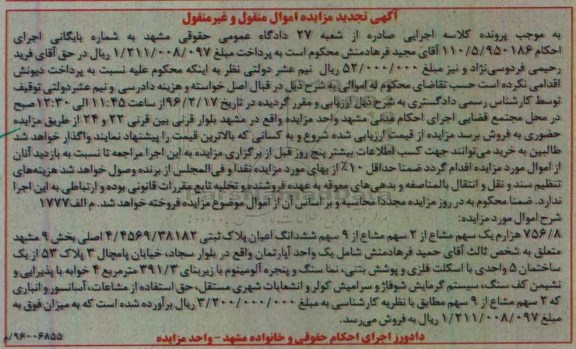 آگهی تجدید مزایده اموال منقول و غیرمنقول
به موجب پرونده کلاسه اجرایی صادره از شعبه ۲۷ دادگاه عمومی حقوقی مشهد به شماره بایگانی اجرای
احکام ۱۱۰/۵/۹۵۰۱۸۶ آقای مجید فرهادمنش محکوم است به پرداخت مبلغ ۱/۲۱۱/۰۰۸/۰۹۷ ریال در حق آقای فرید
رحیمی فردوسی‌نژاد و نیز مبلغ ۵۲/۰۰۰/۰۰۰ ریال نیم عشر دولتی نظر به اینکه محکوم علیه نسبت به پرداخت دیونش
اقدامی نکرده است حسب تقاضای محکوم له اموالی به شرح ذیل در قبال اصل خواسته و هزینه دادرسی و نیم عشر دولتی توقیف
توسط کارشناس رسمی دادگستری به شرح ذیل ارزیابی و مقرر گردیده در تاریخ ۹۶/۲/۱۷ از ساعت ۱۱:۴۵ الی ۱۲:۳۰ صبح
در محل مجتمع قضایی اجرای احکام مدنی مشهد واحد مزایده واقع در مشهد بلوار قرنی بین قرنی ۲۲ و ۲۴ از طریق مزایده
حضوری به فروش برسد مزایده از قیمت ارزیابی شده شروع و به کسانی که بالاترین قیمت را پیشنهاد نمایند واگذار خواهد شد
طالبین به خرید می‌توانند جهت کسب اطلاعات بیشتر پنج روز قبل از برگزاری مزایده به این اجرا مراجعه تا نسبت به بازدید آنان
از اموال مورد مزایده اقدام گردد ضمنا حداقل ۱۰٪ از بهای مورد مزایده نقدا و فی‌المجلس از برنده وصول خواهد شد هزینه‌های
تنظیم سند و نقل و انتقال بالمناصفه و بدهی‌های معوقه به عهده فروشنده و تخلیه تابع مقررات قانونی بوده و ارتباطی به این اجرا
ندارد. ضمنا محکوم به در روز مزایده مجددا محاسبه و بر اساس آن از اموال موضوع مزایده فروخته خواهد شد. م الف ۱۷۷۷
شرح اموال مورد مزایده:
۷۵۶/۸ هزارم یک سهم مشاع از ۲ سهم مشاع از ۹ سهم ششدانگ اعیان پلاک ثبتی ۴/۴۵۶۹/۳۸۱۸۲ اصلی بخش ۹ مشهد
متعلق به شخص ثالث آقای حمید فرهادمنش شامل یک واحد آپارتمان واقع در بلوار سجاد، خیابان پامچال ۳ پلاک ۵۳ از یک
ساختمان ۵ واحدی با اسکلت فلزی و پوشش بتنی، نما سنگ و پنجره آلومینیوم با زیربنای ۳۹۱/۳ مترمربع ۴ خوابه با پذیرایی و
نشیمن کف سنگ، سیستم گرمایش شوفاژ و سرامیش کولر و انشعابات شهری مستقل، حق استفاده از مشاعات، آسانسور و انباری
که ۲ سهم مشاع از ۹ سهم مطابق با نظریه کارشناسی به مبلغ ۳/۲۰۰/۰۰۰/۰۰۰ ریال برآورده شده است که به میزان فوق به
مبلغ ۱/۲۱۱/۰۰۸/۰۹۷ ریال به فروش می‌رسد.
دادورز اجرای احکام حقوقی و خانواده مشهد - واحد مزایده
۹۶۰۰۶۸۵۵/م